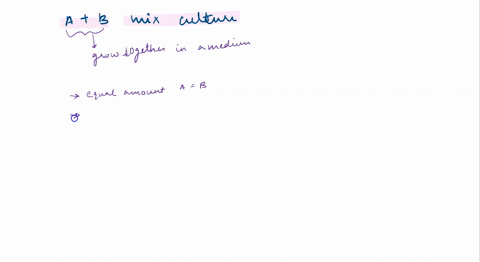 A + B mix culture
grow together in a medium
→ equal amount A = B